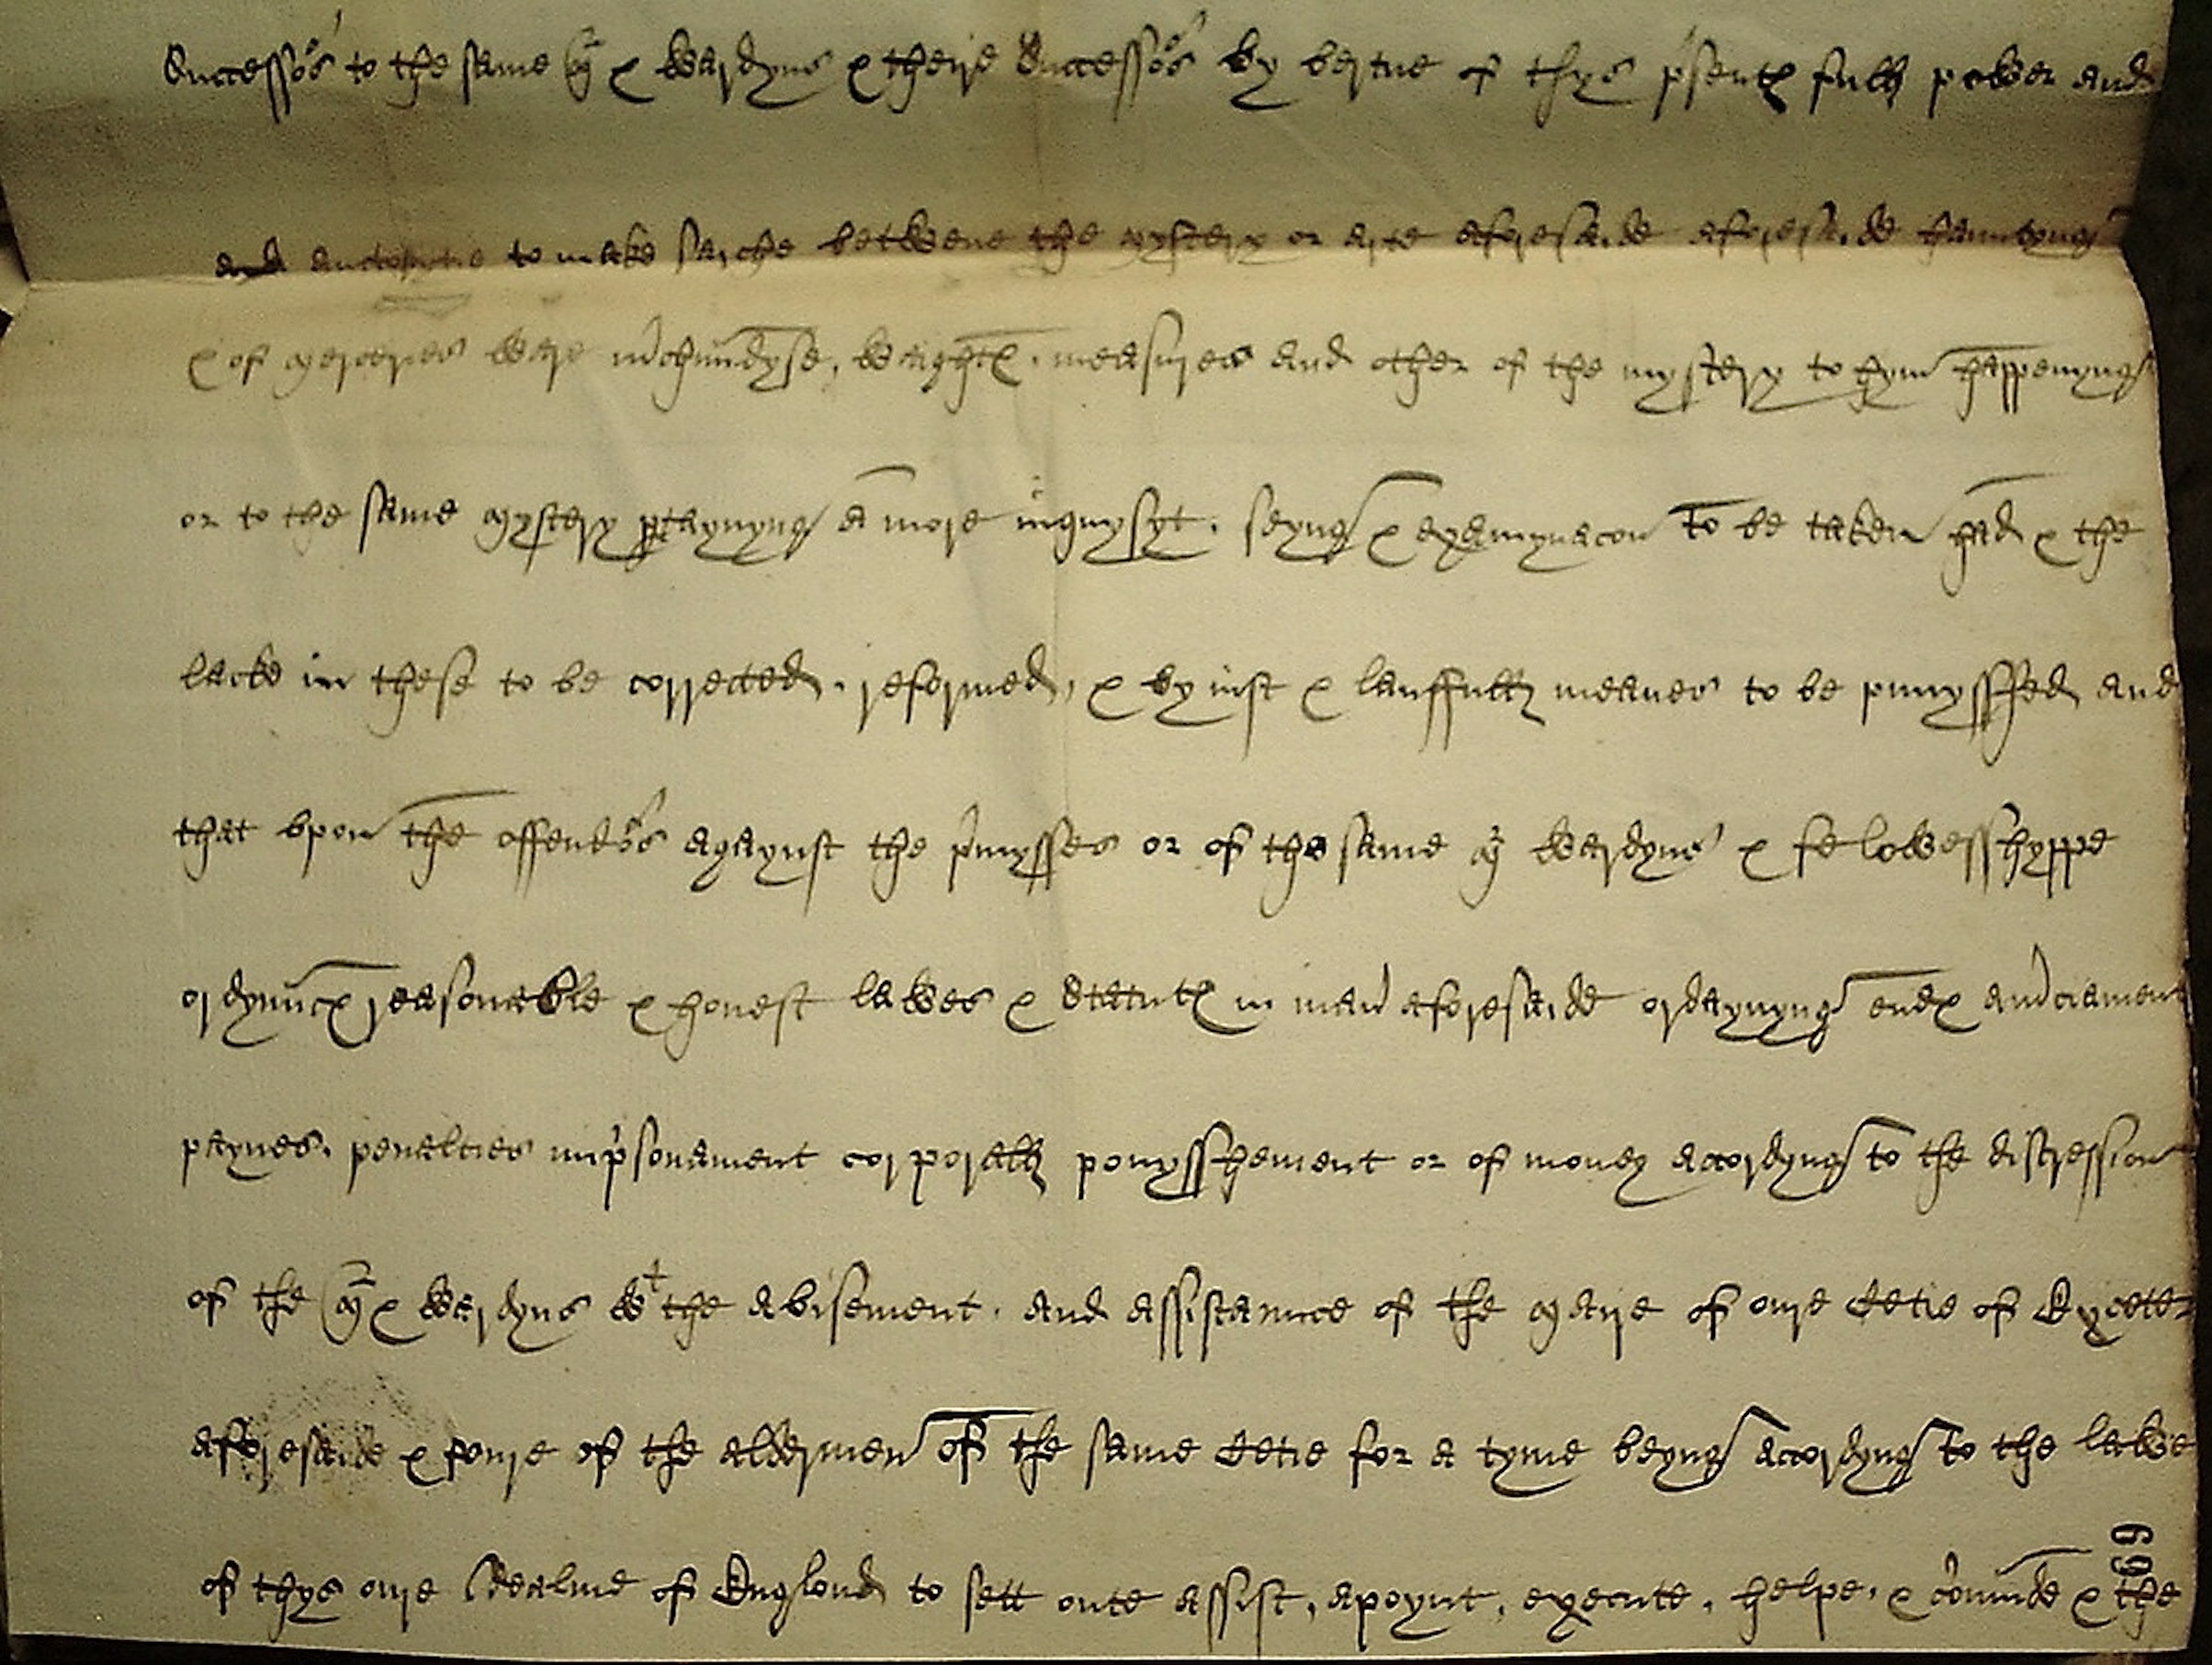 Successors to the same M & Wardyns & theire Successors by vertue of thys p'sentes full power and
and auctorytie to make sarche betwene the mystery or arte aforesaide aforesaide hauntyng
& of merceries ware m'chaundyse, waightes, measures and other of the mystery to hym happenyng
or to the same mystery p'taynyng a more inquysyt. seyng & examynacon to be taken had & the
lacke in these to be corrected, reformed, & by iust & laufful meanes to be punysshed and
that vpon the offendors agaynst the p'mysses or of the same M wardyns & felowesshyppe
ordynnces reasonable & honest lawes & Statutes in man' aforesaide ordaynyng endes am'ciament
paynes, penalties imp'sonament corporall ponysshement or of money accordyng to the discression
of the M & wardyns wt the avisement, and assistaunce of the maire of oure Cetie of Exceter
aforesaide & foure of the aldermen of the same Cetie for a tyme beyng accordyng to the lawe
of thys oure Realme of Englond to sett oute assist, apoynt, execute, helpe, & c'ommde & the
69